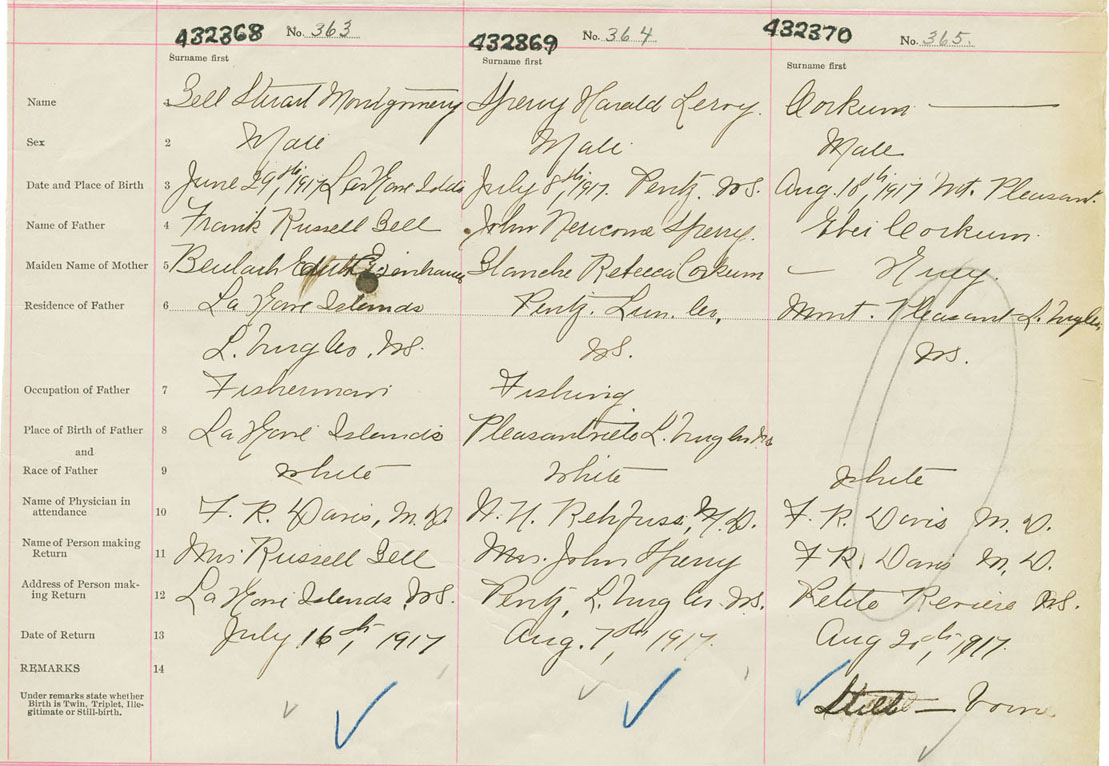 432368 No. 363 432869 No. 364 432370 No. 365.
Surname first Surname first Surname first
Name 1 Bell Stuart Montgomery Sperry Harald Leroy. Corkum —
Sex 2 Male Male Male
Date and Place of Birth 3 June 29th, 1917 LaHave Islds July 8th, 1917. Pentz. N.S. Aug. 18th, 1917 Mt. Pleasant.
Name of Father 4 Frank Russell Bell John Newcome Sperry. Eber Corkum.
Maiden Name of Mother 5 Beulah Edith Eisenhauer Blanche Rebecca Corkum —
Residence of Father 6 La Have Islands Pentz. Lun. Co, Mount. Pleasant
N.S. N.S. N.S.
Occupation of Father 7 Fisherman Fishing
Place of Birth of Father 8 La Have Islands
and
Race of Father 9 white White white
Name of Physician in
attendance 10 F. R. Davis, M.D. Rehfuss, M.D. F. R. Davis M.D.
Name of Person making
Return 11 Mrs Russell Bell Mrs. John Sperry F R. Davis M.D.
Address of Person mak-
ing Return 12 La Have Islands N.S. Pentz, N.S. Petite Reviere N.S.
Date of Return 13 July 16th, 1917 Aug. 7th, 1917. Aug 20th, 1917.
REMARKS 14
Under remarks state whether
Birth is Twin, Triplet, Ille-
gitimate or Still-birth. Still — born